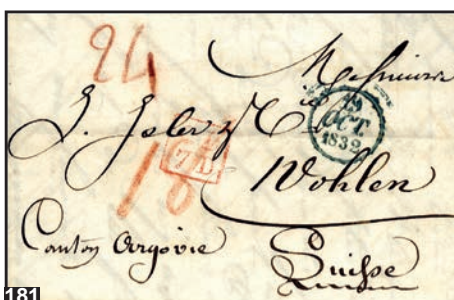 24
Messieurs
J. Isler & Cie
19
OCT
1832
7 D.
18
Wohlen
Canton Argovie
Suisse
181